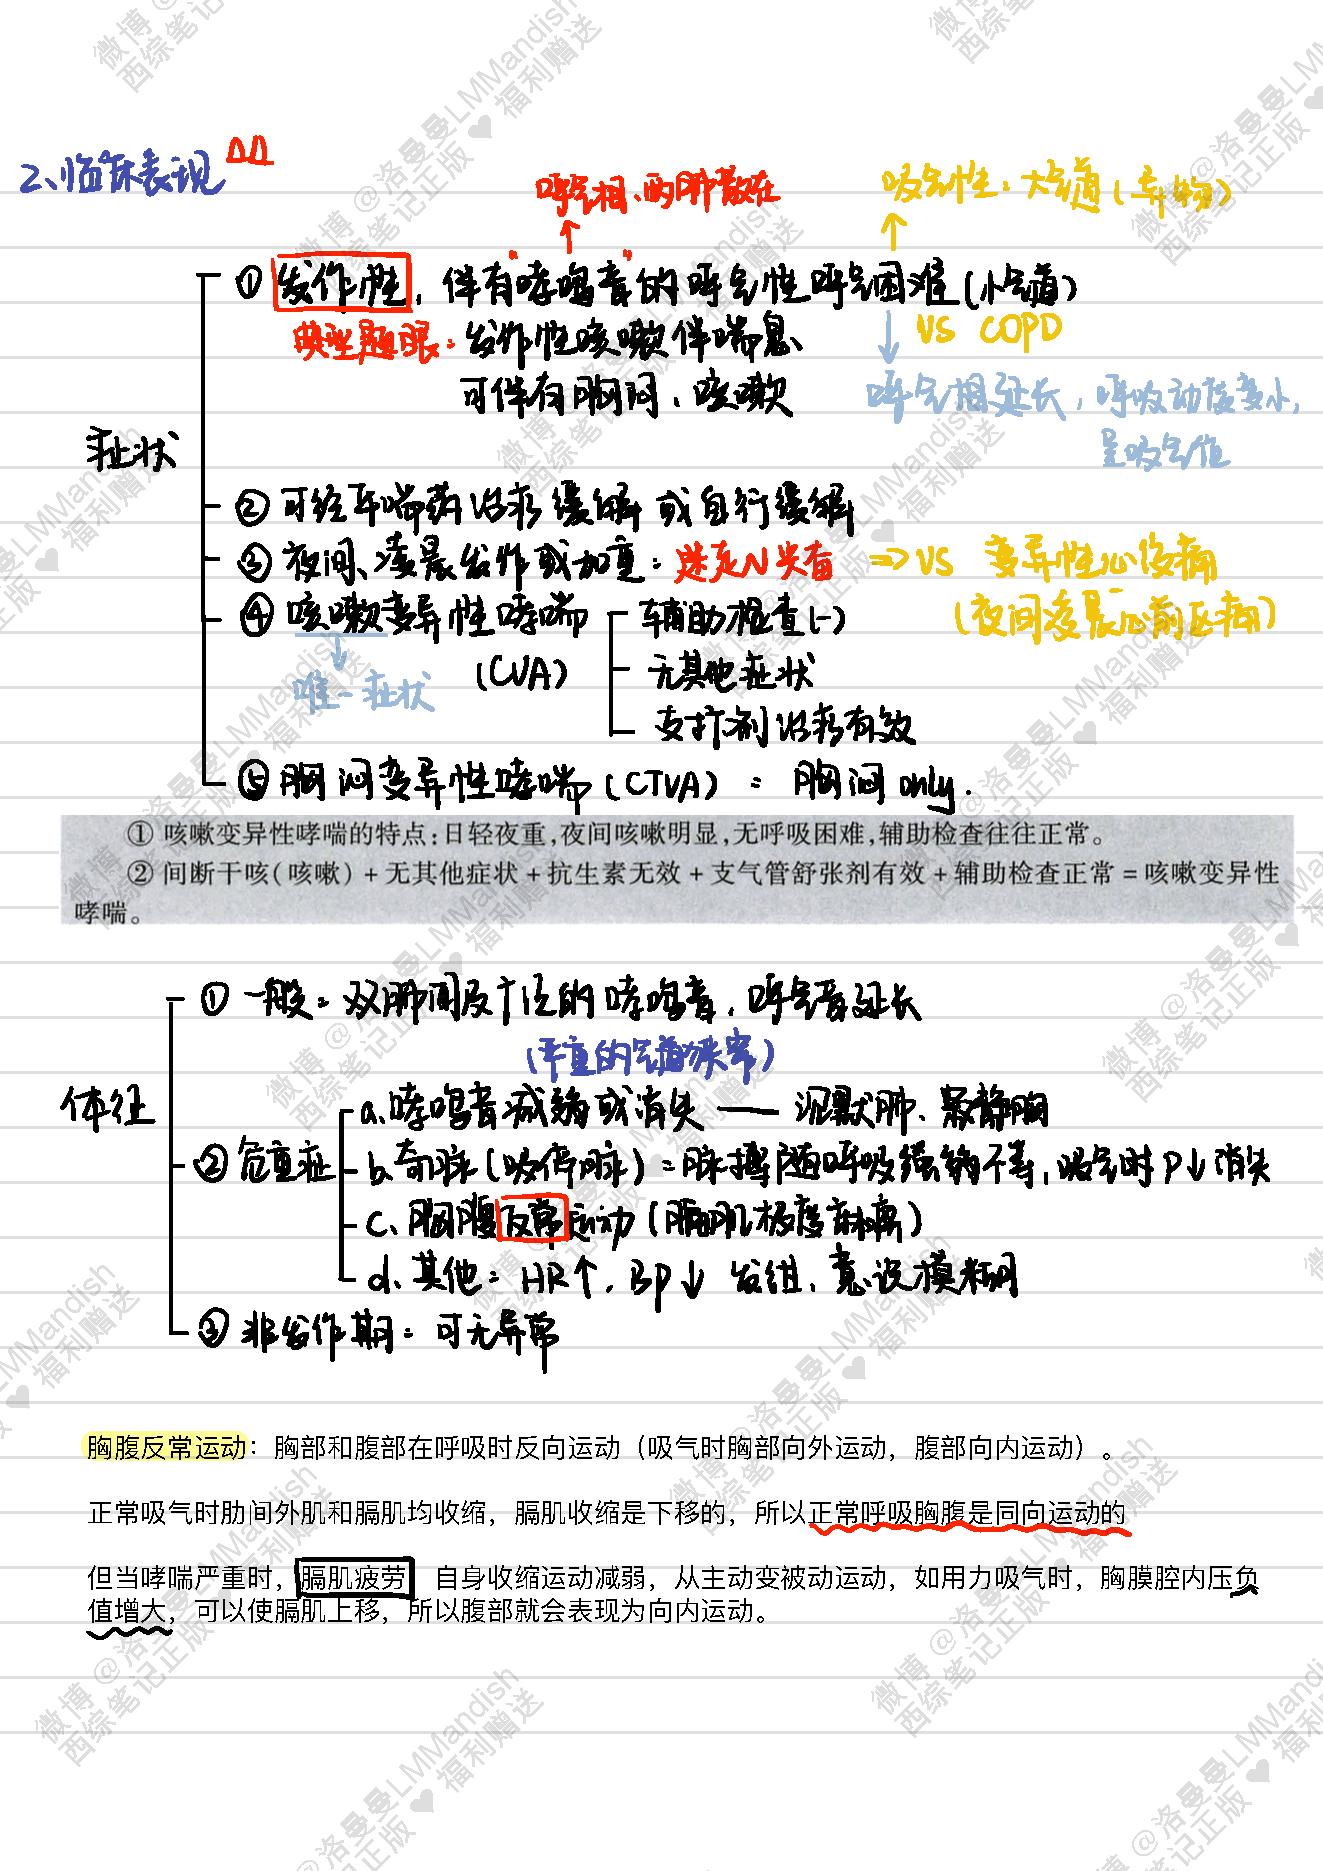 2、临床表现 △△
呼气相、两肺散在
吸气性：大气道（异物）
① 发作性，伴有“哮鸣音”的呼气性呼气困难（小气道）
典型题眼：发作性咳嗽伴喘息
VS COPD
可伴有胸闷、咳嗽
呼气相延长，呼吸动度变小，
呈吸气位
症状
② 可经平喘药治疗缓解或自行缓解
③ 夜间、凌晨发作或加重：迷走N兴奋 => VS 变异性心绞痛
④ 咳嗽变异性哮喘
辅助检查(-)
（夜间凌晨心前区痛）
唯一症状
(CVA)
无其他症状
支扩剂治疗有效
⑤ 胸闷变异性哮喘（CTVA）= 胸闷only.
① 咳嗽变异性哮喘的特点：日轻夜重，夜间咳嗽明显，无呼吸困难，辅助检查往往正常。
② 间断干咳（咳嗽）+无其他症状+抗生素无效+支气管舒张剂有效+辅助检查正常=咳嗽变异性
哮喘。
① 一般：双肺闻及广泛的哮鸣音，呼气音延长
（严重的气道狭窄）
体征
a.哮鸣音减弱或消失 —— 沉默肺、寂静胸
② 危重症
b.奇脉（吸停脉）=脉搏随呼吸强弱不等，吸气时P↓消失
c、胸腹反常运动（膈肌极度疲劳）
d、其他：HR↑，BP↓ 发绀、意识模糊
③ 非发作期：可无异常
胸腹反常运动：胸部和腹部在呼吸时反向运动（吸气时胸部向外运动，腹部向内运动）。
正常吸气时肋间外肌和膈肌均收缩，膈肌收缩是下移的，所以正常呼吸胸腹是同向运动的
但当哮喘严重时，膈肌疲劳 自身收缩运动减弱，从主动变被动运动，如用力吸气时，胸膜腔内压负
值增大，可以使膈肌上移，所以腹部就会表现为向内运动。
微博@洛曼曼LMMandish
西综笔记正版♥福利赠送